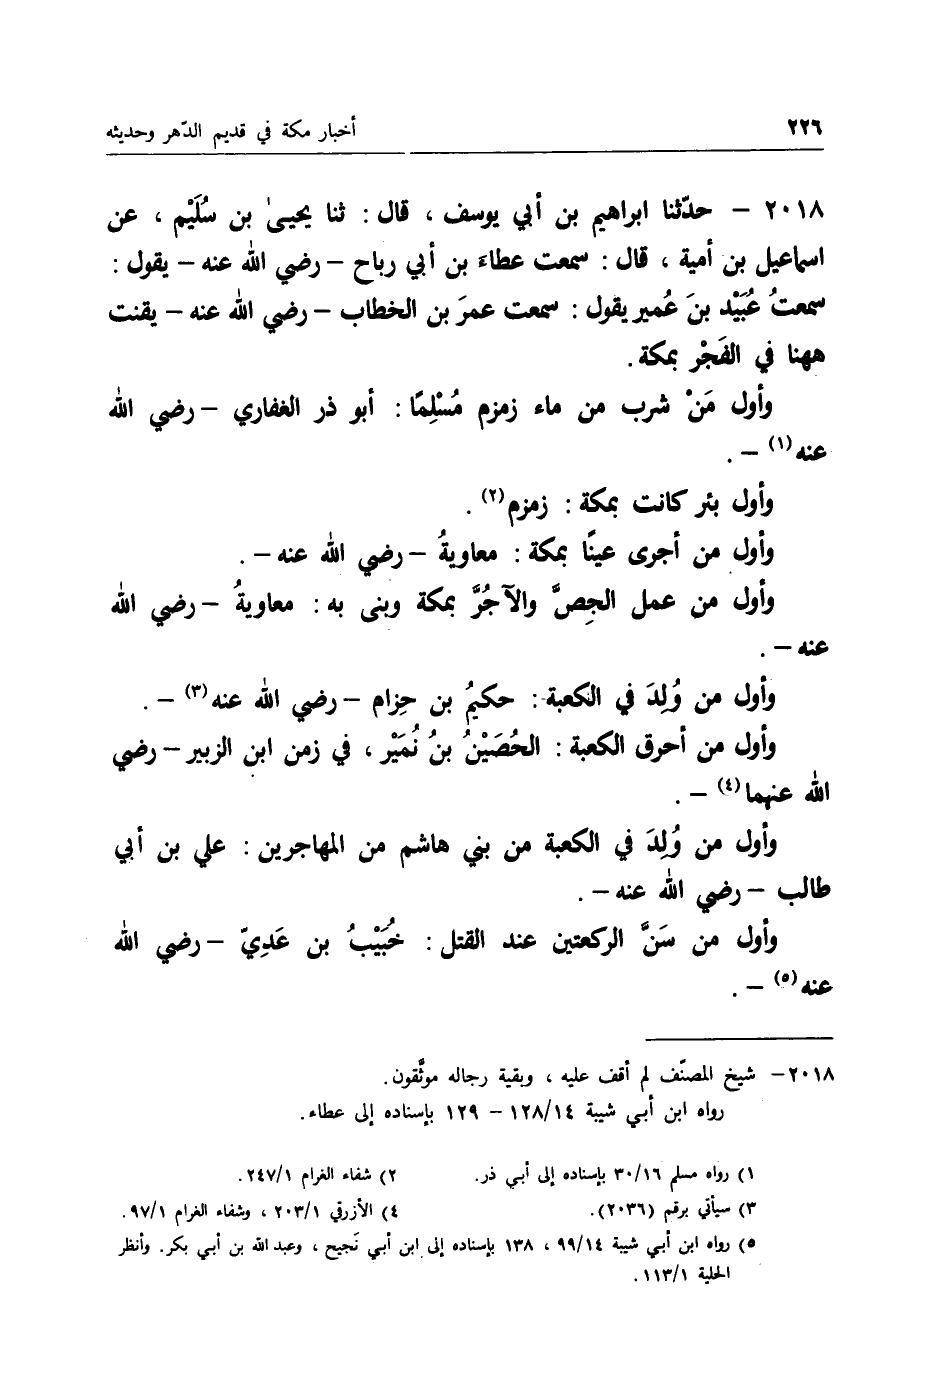 ٢٢٦ أخبار مكة في قديم الدّهر وحديثه
٢٠١٨ – حدّثنا ابراهيم بن أبي يوسف ، قال : ثنا يحيىٰ بن سُلَيْم ، عن
اسماعيل بن أمية ، قال : سمعت عطاءَ بن أبي رباح – رضي الله عنه – يقول :
سمعتُ عُبَيْد بنَ عُمير يقول : سمعت عمرَ بن الخطاب – رضي الله عنه – يقنت
ههنا في الفَجْر بمكة .
وأول مَنْ شرب من ماء زمزم مُسْلِمًا : أبو ذر الغفاري – رضي الله
عنه (١) – .
وأول بئر كانت بمكة : زمزم (٢) .
وأول من أجرى عينًا بمكة : معاويةُ – رضي الله عنه – .
وأول من عمل الجِصَّ والآجُرَّ بمكة وبنى به : معاويةُ – رضي الله
عنه – .
وأول من وُلِدَ في الكعبة : حكيمُ بن حِزام – رضي الله عنه (٣) – .
وأول من أحرق الكعبة : الحُصَيْنُ بنُ نُمَيْر ، في زمن ابن الزبير – رضي
الله عنهما (٤) – .
وأول من وُلِدَ في الكعبة من بني هاشم من المهاجرين : علي بن أبي
طالب – رضي الله عنه – .
وأول من سَنَّ الركعتين عند القتل : خُبَيْبُ بن عَدِيّ – رضي الله
عنه (٥) – .
٢٠١٨ – شيخ المصنّف لم أقف عليه ، وبقية رجاله موثَّقون .
رواه ابن أبي شيبة ١٢٨/١٤ – ١٢٩ بإسناده إلى عطاء .
١) رواه مسلم ٣٠/١٦ بإسناده إلى أبي ذر. ٢) شفاء الغرام ٢٤٧/١ .
٣) سيأتي برقم (٢٠٣٦). ٤) الأزرقي ٢٠٣/١ ، وشفاء الغرام ٩٧/١ .
٥) رواه ابن أبي شيبة ٩٩/١٤ ، ١٣٨ بإسناده إلى ابن أبي نَجيح ، وعبد الله بن أبي بكر. وأنظر
الحلية ١١٣/١ .